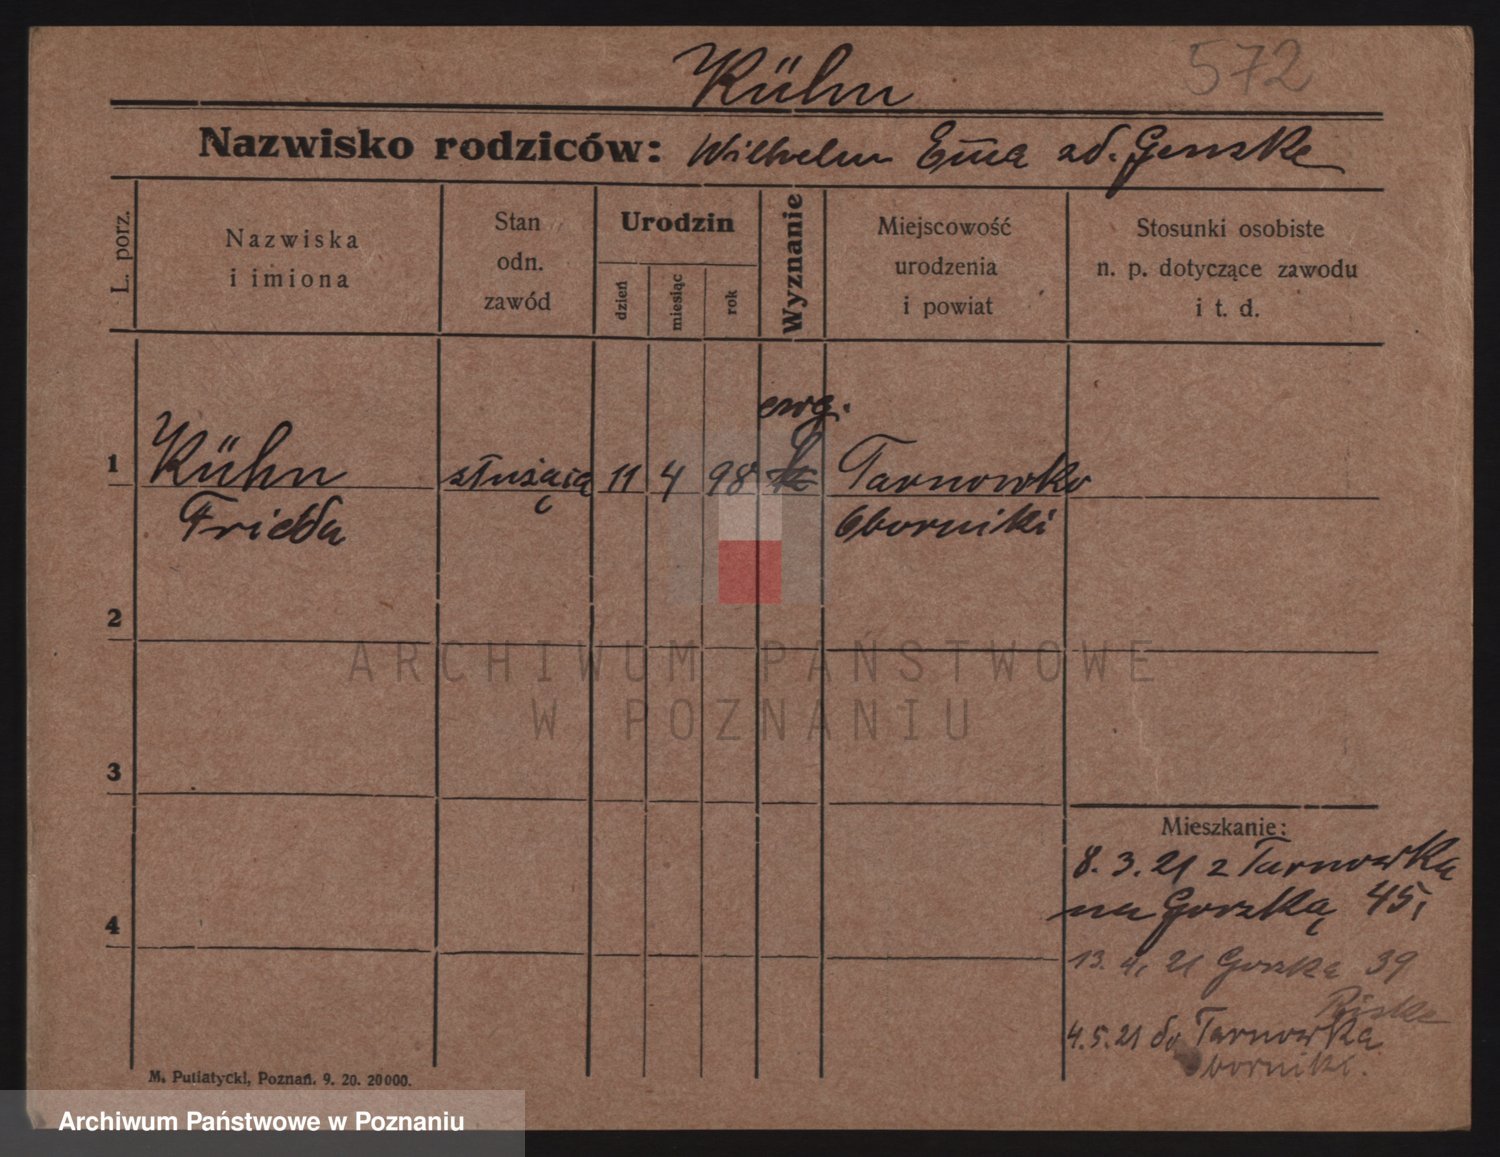 Kühn 572
Nazwisko rodziców: Wilhelm Ema zd. Genske
L. porz.
Nazwiska
i imiona
Stan
odn.
zawód
Urodzin
dzień
miesiąc
rok
Wyznanie
Miejscowość
urodzenia
i powiat
Stosunki osobiste
n. p. dotyczące zawodu
i t. d.
ewg.
1 Kühn służąca 11 4 98 k Tarnowko
Frieda Oborniki
2
ARCHIWUM PAŃSTWOWE
W POZNANIU
3
Mieszkanie:
8.3.21 z Tarnowka
na Gorzką 45,
4
13.4.21 Gorzka 39
4.5.21 do Tarnowka
Oborniki.
M. Putiatycki, Poznań. 9. 20. 20000.
Archiwum Państwowe w Poznaniu